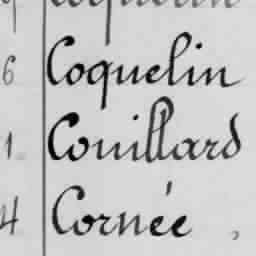 6 Coquelin
1 Couillard
4 Cornée